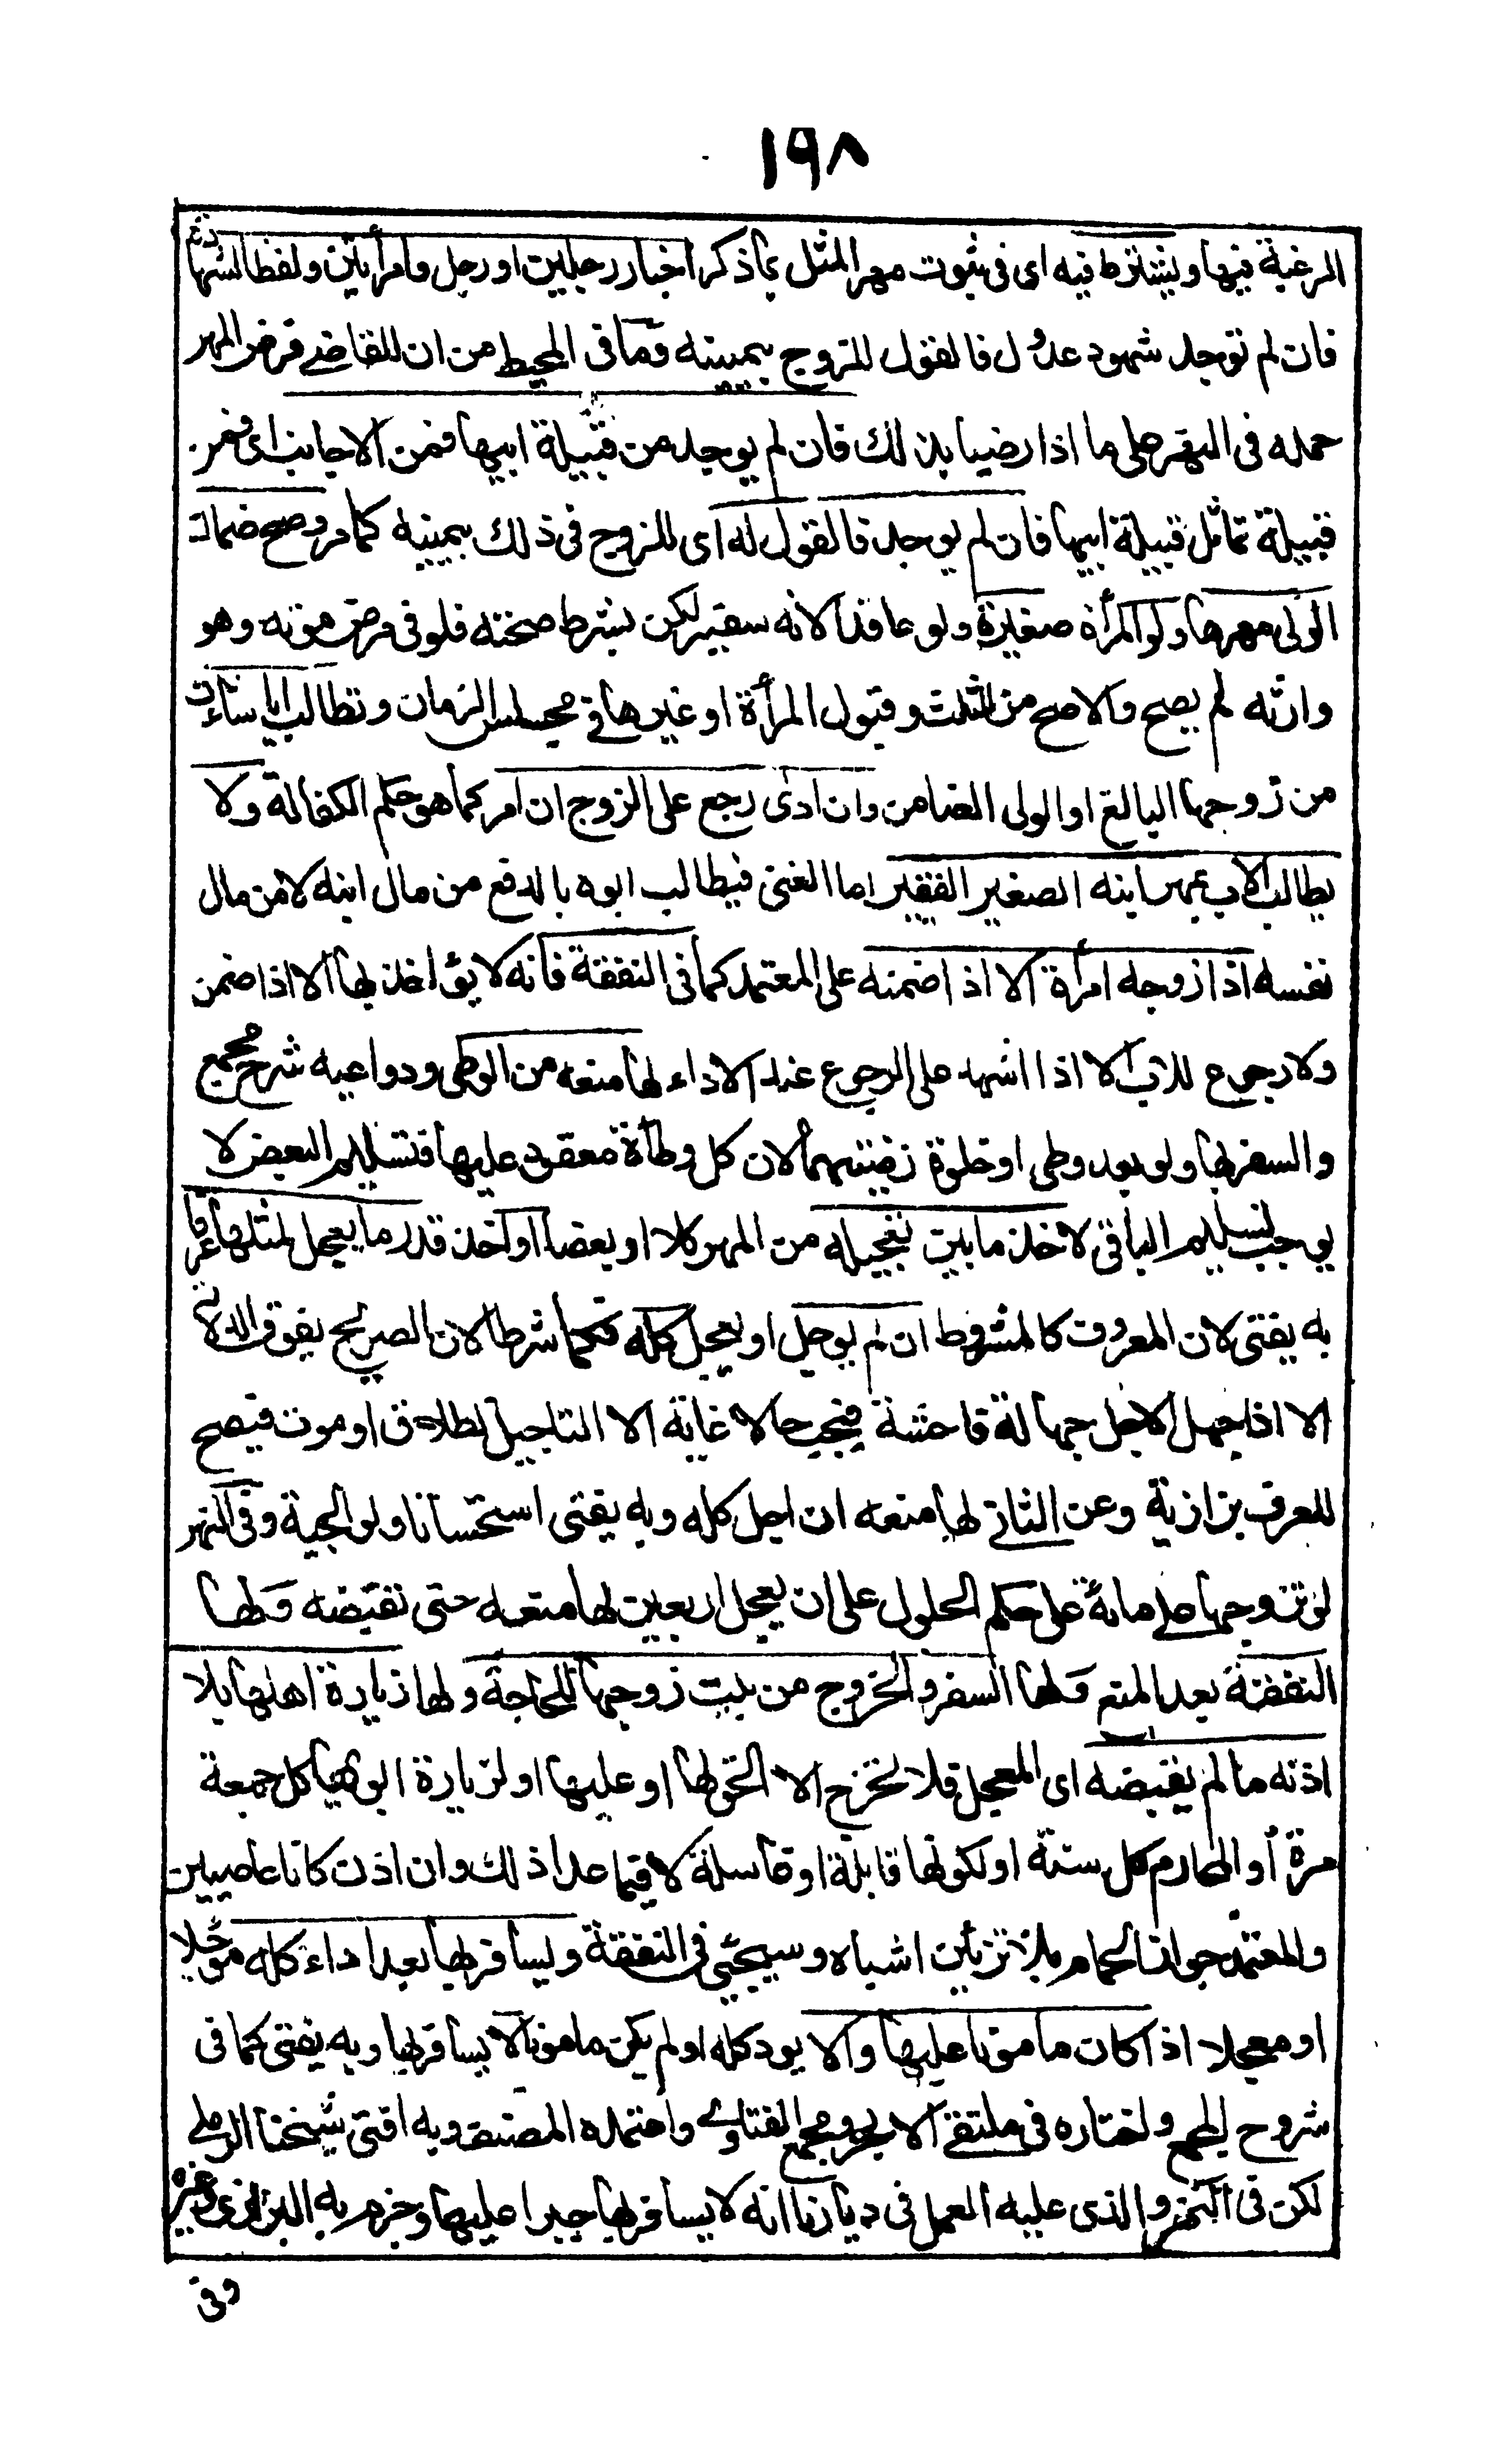 ١٩٨
المرغبة فيها ويشترط فيه اى فى ثبوت مهر المثل بما ذكر اخبار رجلين او رجل وامرأتين ولفظ الشهادة
فان لم توجد شهود عدول فالقول للزوج بيمينه وما فى المحيط من ان للقاضى فرض المهر
حمله فى النهر على ما اذا رضيا بذلك فان لم يوجد من قبيلة ابيها فمن الاجانب اى فمن
قبيلة تماثل قبيلة ابيها فان لم يوجد فالقول له اى للزوج فى ذلك بيمينه كما مر وصح ضمان
الولى مهرها ولو المرأة صغيرة ولو عاقدا لانه سفير لكن بشرط صحته فلو فى مرض موته وهو
وارثه لم يصح والا صح من الثلث وقبول المرأة او غيرها فى مجلس الزمان وتطالب ايا شاءت
من زوجها البالغ او الولى الضامن وان ادى رجع على الزوج ان امر كما هو حكم الكفالة ولا
يطالب الاب بمهر ابنه الصغير الفقير اما الغنى فيطالب ابوه بالدفع من مال ابنه لا من مال
نفسه اذا زوجه امرأة الا اذا ضمنه على المعتمد كما فى النفقة فانه لا يؤاخذ بها الا اذا ضمن
ولا رجوع للاب الا اذا اشهد على الرجوع عند الاداء لها منعه من الوطى ودواعيه شرح مجمع
والسفر بها ولو بعد وطى او خلوة رضيتهما لان كل وطأة معقود عليها فتسليم البعض لا
يوجب تسليم الباقى لاخذ ما بين تعجيله من المهر كلا او بعضا او اخذ قدر ما يعجل لمثلها عرفا
به يفتى لان المعروف كالمشروط ان لم يوجل او يعجل كله فكما شرطا لان الصريح يفوق الدلالة
الا اذا جهل الاجل جهالة فاحشة فيجب حالا غاية الا التاجيل لطلاق او موت فيصح
للعرف بزازية وعن الثانى لها منعه ان اجل كله وبه يفتى استحسانا ولوالجية وفى النهر
لو تزوجها على مائة على حكم الحلول على ان يعجل اربعين لها منعه حتى تقبضه ولها
النفقة بعد المنع ولها السفر والخروج من بيت زوجها للحاجة ولها زيارة اهلها بلا
اذنه ما لم يقبضه اى المعجل فلا تخرج الا لحق لها او عليها او لزيارة ابويها كل جمعة
مرة او المحارم كل سنة او لكونها قابلة او غاسلة لا فيما عدا ذلك وان اذن كانا عاصيين
والمعتمد جواز الحمام بلا تزين اشباه وسيجئ فى النفقة ويسافر بها بعد اداء كله مؤجلا
او معجلا اذا كان مامونا عليها والا يود كله او لم يكن مامونا لا يسافر بها وبه يفتى كما فى
شروح المجمع واختاره فى ملتقى الابحر ومجمع الفتاوى واعتمده المصنف وبه افتى شيخنا الرملى
لكن فى النهر والذى عليه العمل فى ديارنا انه لا يسافر بها جبرا عليها وجزم به البزازى وغيره
وفى